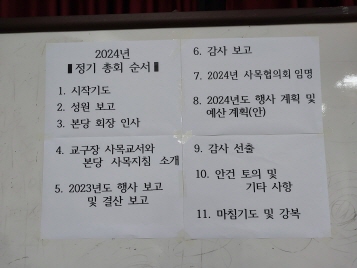 2024년
▌정기 총회 순서▐
1. 시작기도
2. 성원 보고
3. 본당 회장 인사
4. 교구장 사목교서와
본당 사목지침 소개
5. 2023년도 행사 보고
및 결산 보고
6. 감사 보고
7. 2024년 사목협의회 임명
8. 2024년도 행사 계획 및
예산 계획(안)
9. 감사 선출
10. 안건 토의 및
기타 사항
11. 마침기도 및 강복